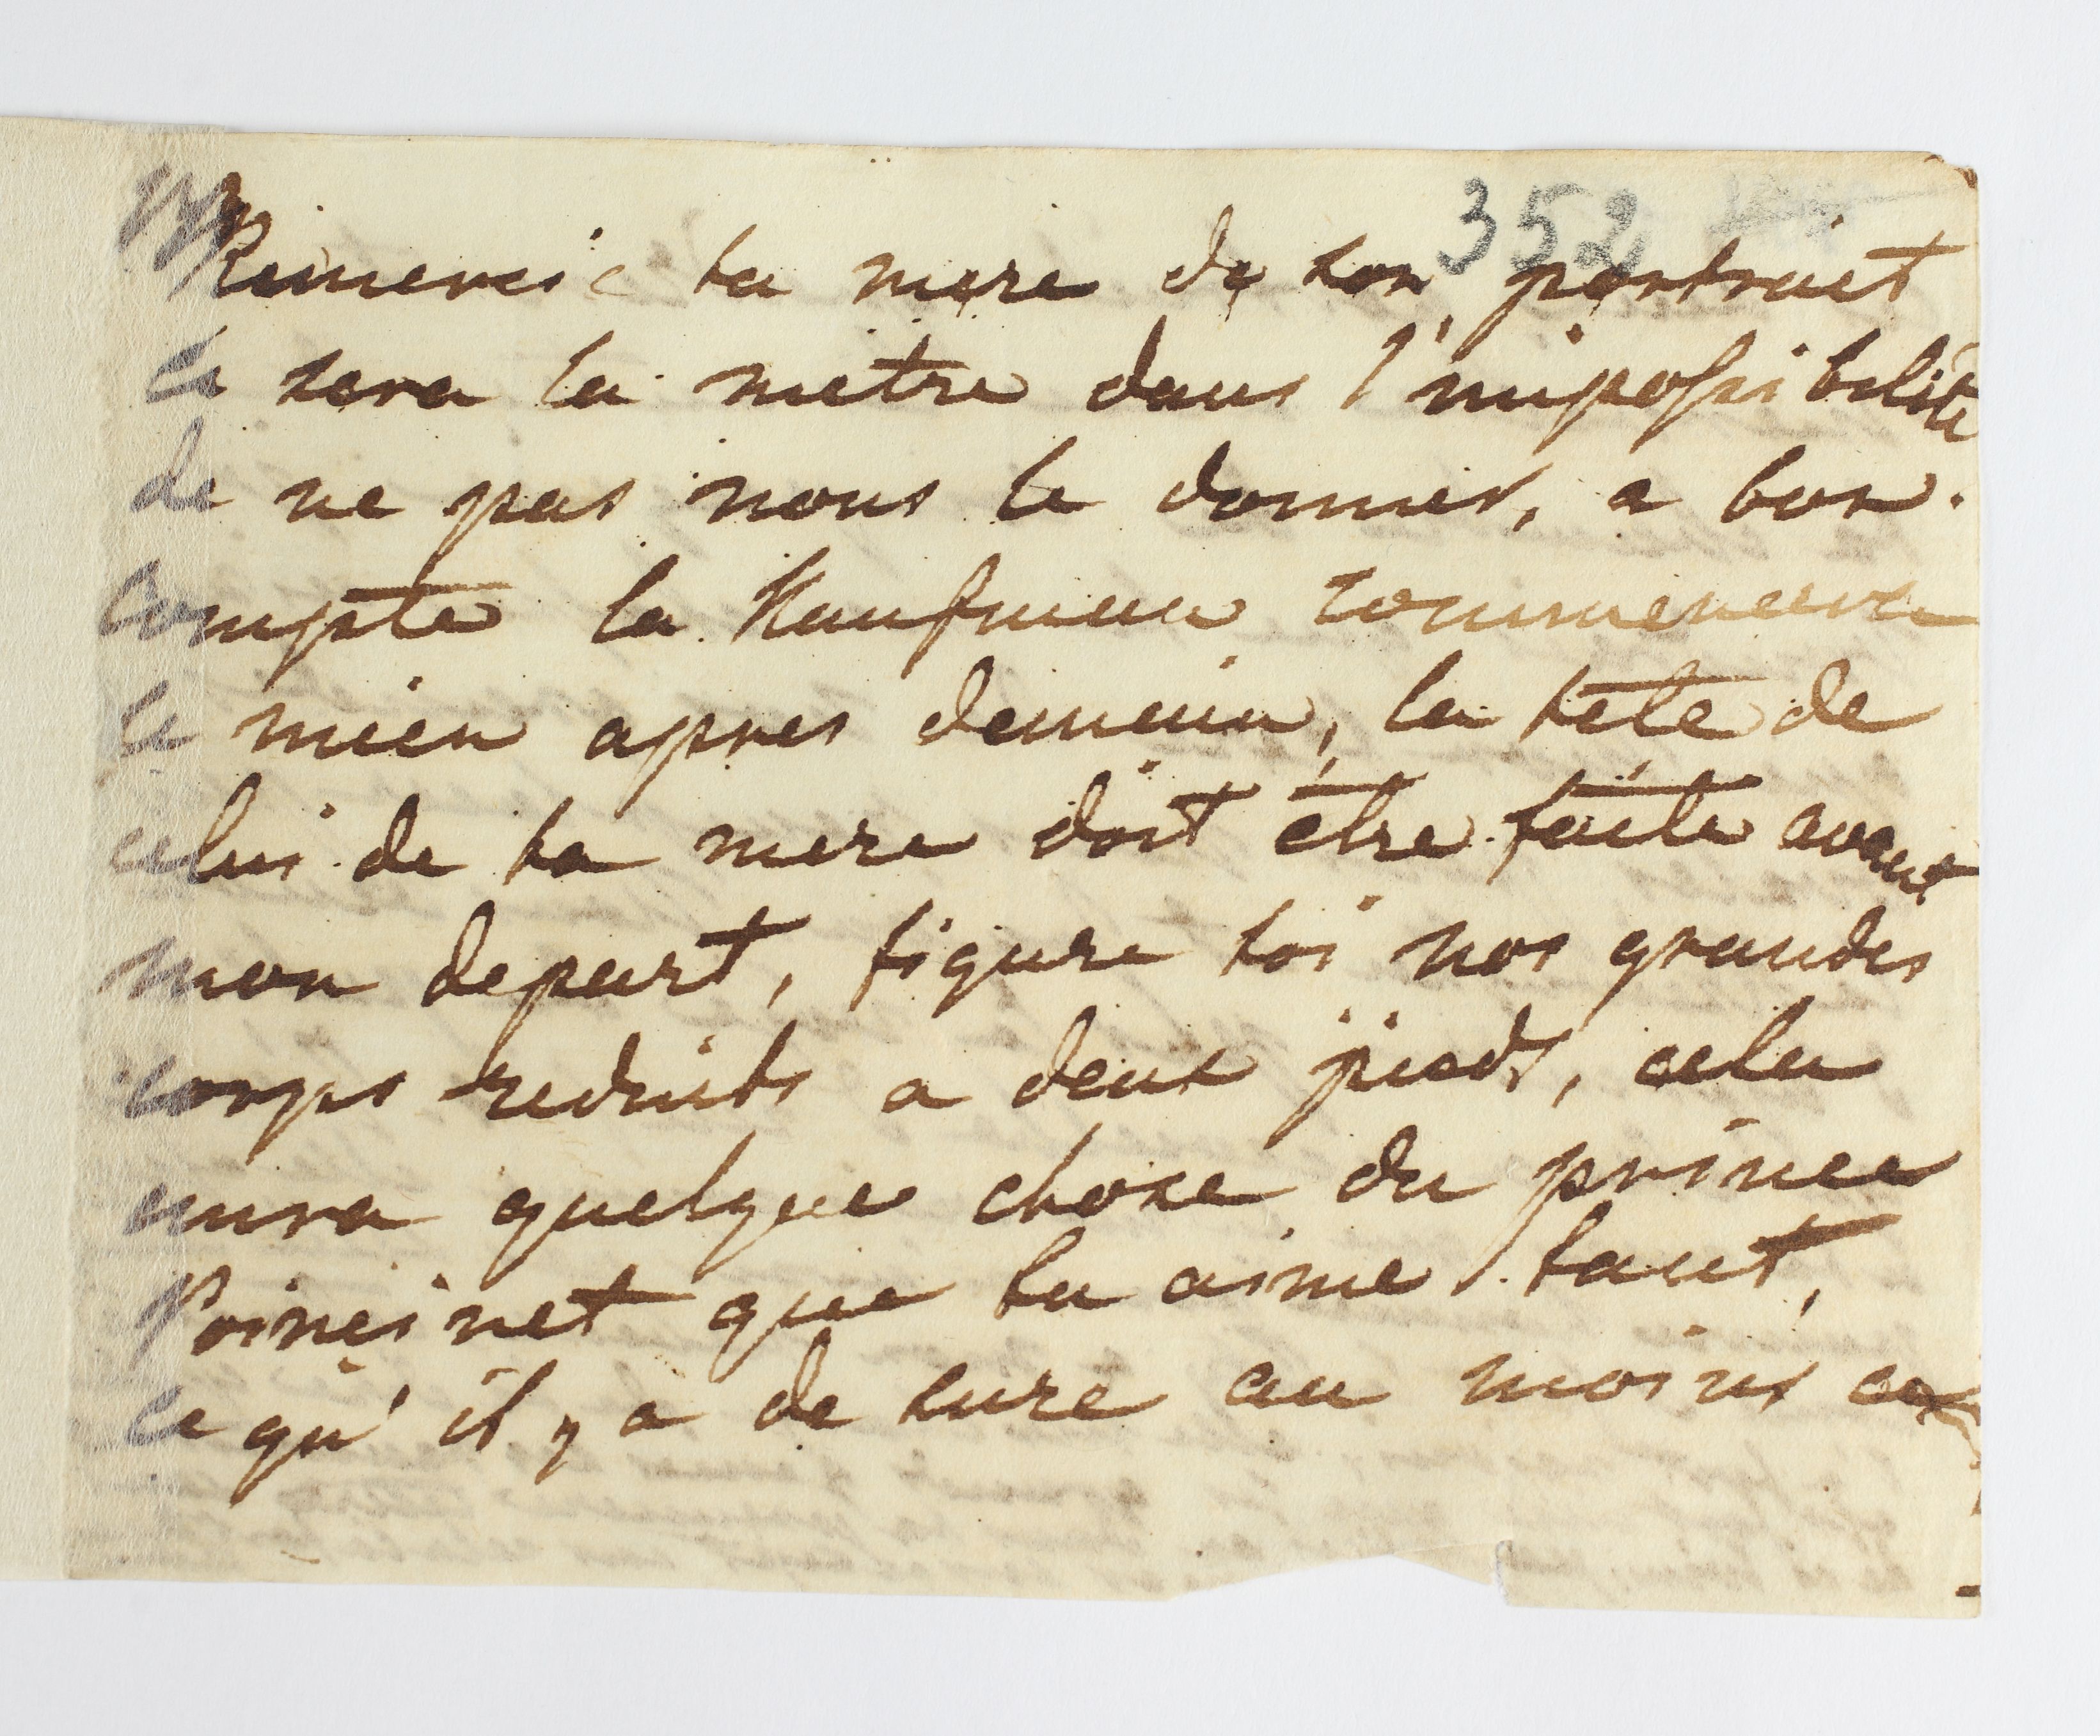 352
Remercie ta mere de son portrait
ce sera la metre dans l'impossibilité
de ne pas nous le donner, a bon
compte la Kaufman commencera
le mien apres demain, la tete de
celui de ta mere doit étre faite avant
mon depart, figure toi nos grandes
corps reduits a deux pieds, cela
aura quelque chose du prince
Poinçinet que tu aime tant,
ce qu'il y a de sure au moins ce